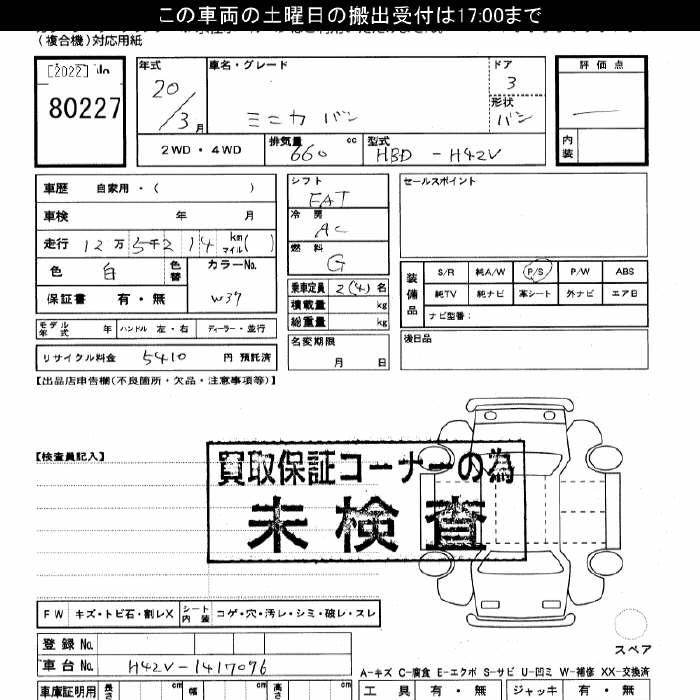 この車両の土曜日の搬出受付は17:00まで
(複合機)対応用紙
[2022]
80227
年式 20/3月
車名・グレード
ミニカ バン
ドア 3
形状 バン
評価点
内装
2WD・4WD
排気量 660 cc
型式 HBD-H42V
車歴 自家用・( )
車検 年 月
走行 12万5千214 km マイル( )
色 白 色替
カラーNo. W37
保証書 有・無
シフト FAT
冷房 AC
燃料 G
乗車定員 2(4)名
積載量 kg
総重量 kg
名変期限
月 日
セールスポイント
装備品
S/R 純A/W P/S P/W ABS
純TV 純ナビ 革シート 外ナビ エアB
ナビ型番:
後日品
モデル年式 年 ハンドル 左・右 ディーラー・並行
リサイクル料金 5410 円 預託済
【出品店申告欄(不良箇所・欠品・注意事項等)】
【検査員記入】
買取保証コーナーの為
未検査
FW キズ・トビ石・割レX シート内装 コゲ・穴・汚レ・シミ・破レ・スレ
スペア
登録 No.
車台 No. H42V-1417096
A-キズ C-腐食 E-エクボ S-サビ U-凹ミ W-補修 XX-交換済
車庫証明用 長さ cm 幅 cm 高さ cm
工具 有・無 ジャッキ 有・無